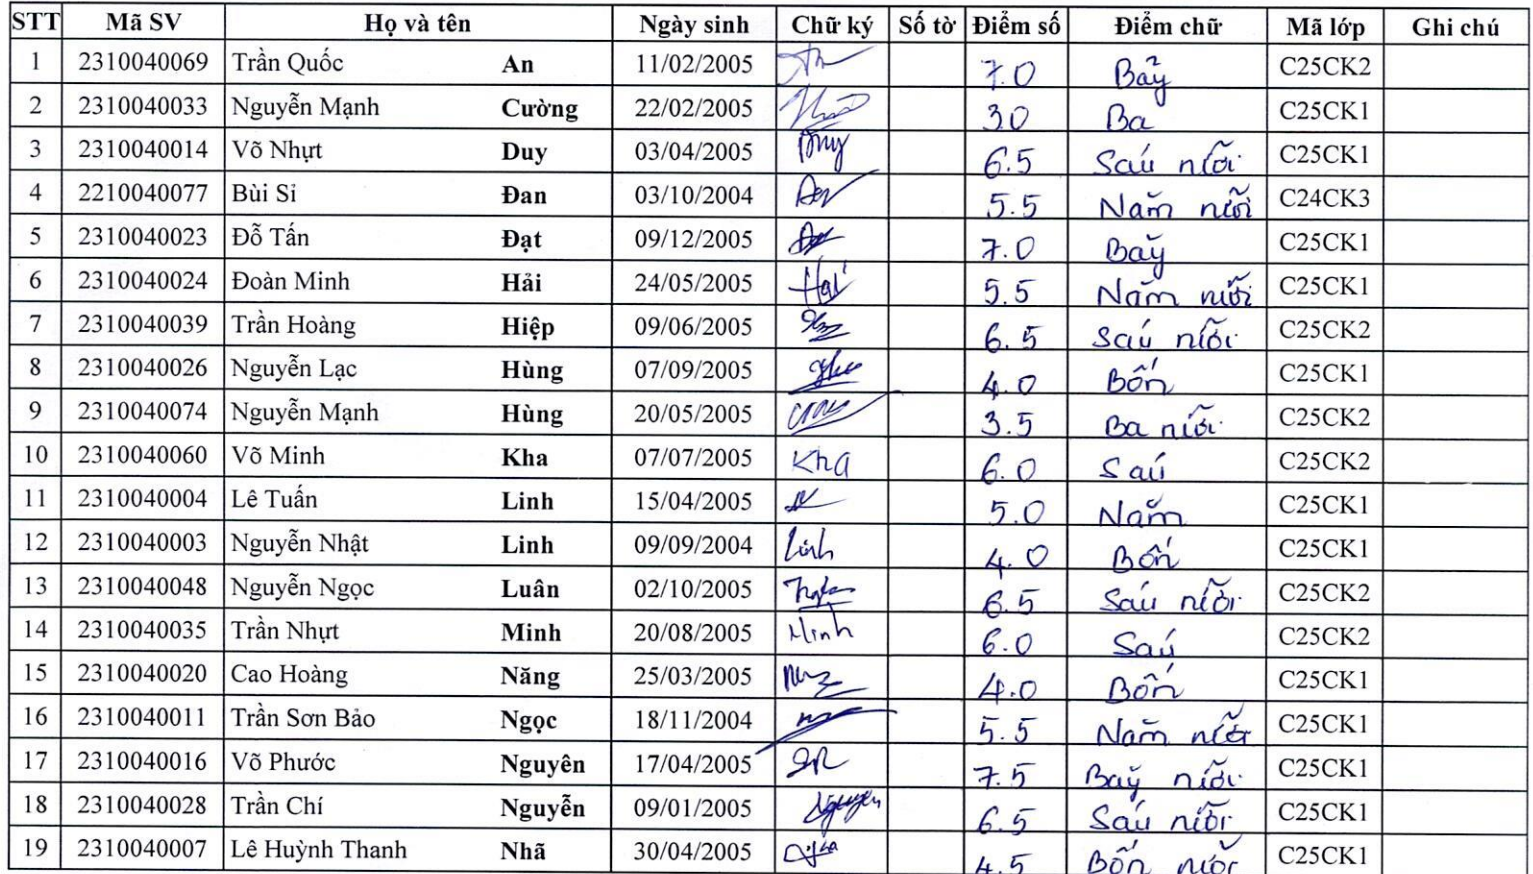 STT Mã SV Họ và tên Ngày sinh Chữ ký Số tờ Điểm số Điểm chữ Mã lớp Ghi chú
1 2310040069 Trần Quốc An 11/02/2005 7.0 Bảy C25CK2
2 2310040033 Nguyễn Mạnh Cường 22/02/2005 3.0 Ba C25CK1
3 2310040014 Võ Nhựt Duy 03/04/2005 Duy 6.5 Sáu rưỡi C25CK1
4 2210040077 Bùi Sỉ Đan 03/10/2004 5.5 Năm rưỡi C24CK3
5 2310040023 Đỗ Tấn Đạt 09/12/2005 7.0 Bảy C25CK1
6 2310040024 Đoàn Minh Hải 24/05/2005 Hải 5.5 Năm rưỡi C25CK1
7 2310040039 Trần Hoàng Hiệp 09/06/2005 6.5 Sáu rưỡi C25CK2
8 2310040026 Nguyễn Lạc Hùng 07/09/2005 4.0 Bốn C25CK1
9 2310040074 Nguyễn Mạnh Hùng 20/05/2005 3.5 Ba rưỡi C25CK2
10 2310040060 Võ Minh Kha 07/07/2005 Kha 6.0 Sáu C25CK2
11 2310040004 Lê Tuấn Linh 15/04/2005 5.0 Năm C25CK1
12 2310040003 Nguyễn Nhật Linh 09/09/2004 Linh 4.0 Bốn C25CK1
13 2310040048 Nguyễn Ngọc Luân 02/10/2005 6.5 Sáu rưỡi C25CK2
14 2310040035 Trần Nhựt Minh 20/08/2005 Minh 6.0 Sáu C25CK2
15 2310040020 Cao Hoàng Năng 25/03/2005 4.0 Bốn C25CK1
16 2310040011 Trần Sơn Bảo Ngọc 18/11/2004 5.5 Năm rưỡi C25CK1
17 2310040016 Võ Phước Nguyên 17/04/2005 7.5 Bảy rưỡi C25CK1
18 2310040028 Trần Chí Nguyễn 09/01/2005 Nguyen 6.5 Sáu rưỡi C25CK1
19 2310040007 Lê Huỳnh Thanh Nhã 30/04/2005 4.5 Bốn rưỡi C25CK1